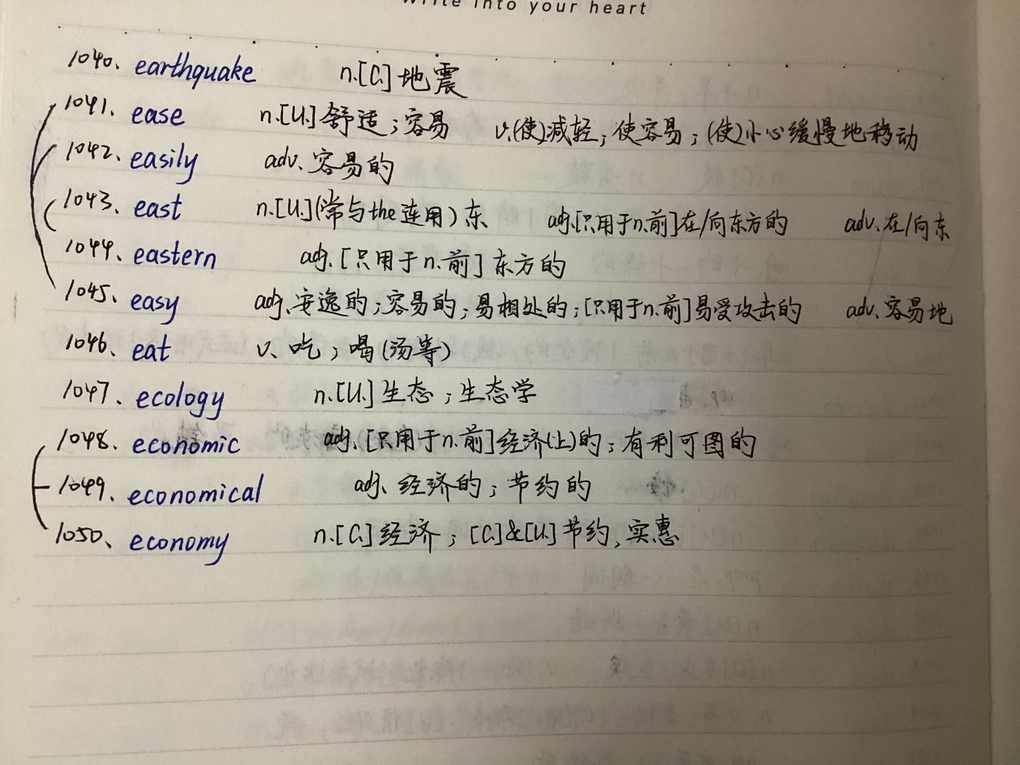 write into your heart
1040、earthquake n.[C.]地震
1041、ease n.[U.]舒适；容易 v.(使)减轻；使容易；(使)小心缓慢地移动
1042、easily adv.容易的
1043、east n.[U.](常与the连用)东 adj.[只用于n.前]在/向东方的 adv.在/向东
1044、eastern adj.[只用于n.前]东方的
1045、easy adj.安逸的；容易的；易相处的；[只用于n.前]易受攻击的 adv.容易地
1046、eat v、吃；喝(汤等)
1047、ecology n.[U.]生态；生态学
1048、economic adj.[只用于n.前]经济(上)的；有利可图的
1049、economical adj、经济的；节约的
1050、economy n.[C.]经济；[C.]&[U.]节约,实惠